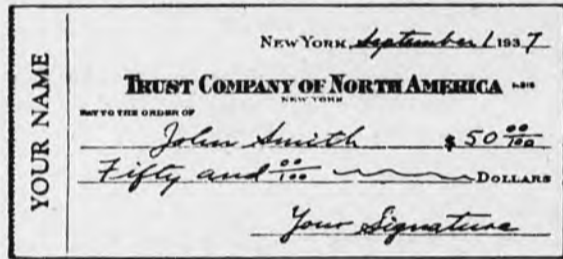 YOUR NAME
NEW YORK September 1 1937
TRUST COMPANY OF NORTH AMERICA
NEW YORK
PAY TO THE ORDER OF
John Smith $ 50 00/100
Fifty and 00/100 DOLLARS
Your Signature